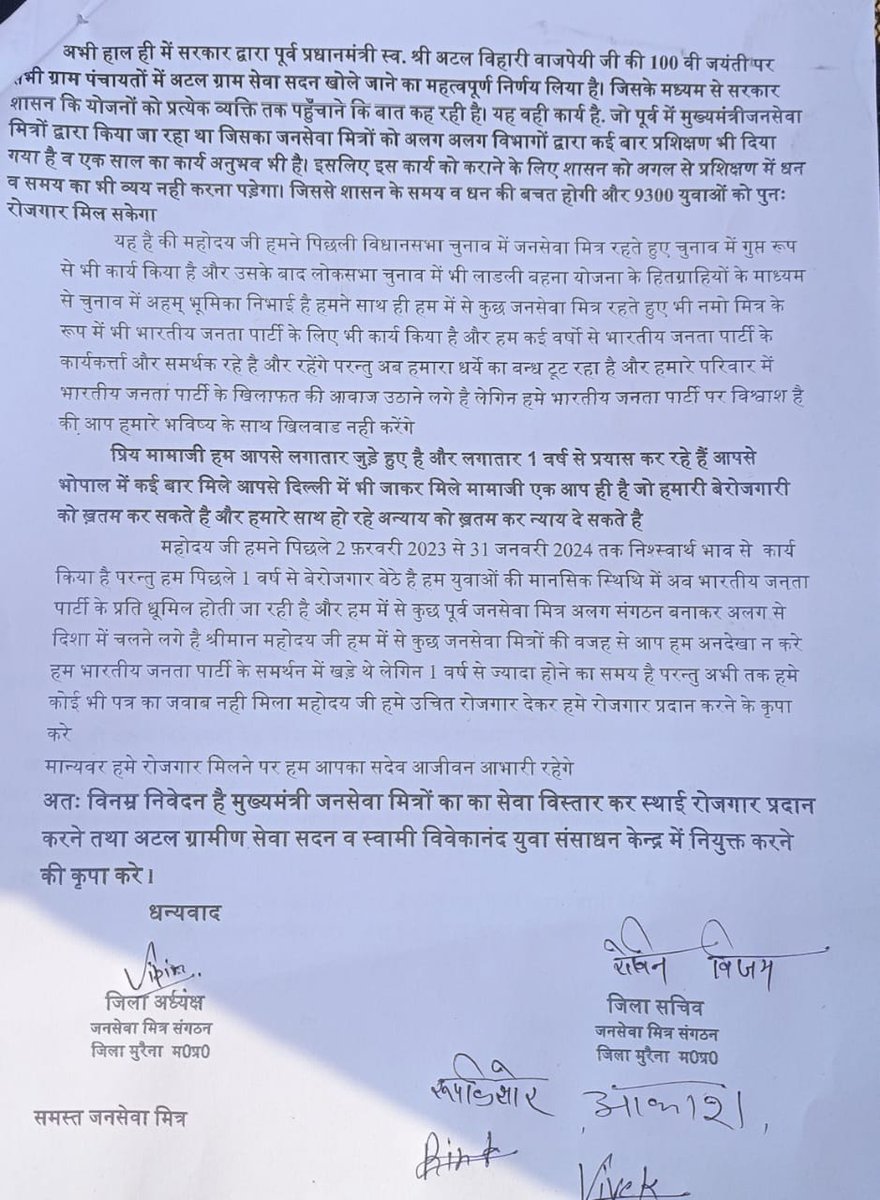 अभी हाल ही में सरकार द्वारा पूर्व प्रधानमंत्री स्व. श्री अटल विहारी वाजपेयी जी की 100 वी जयंती पर
सभी ग्राम पंचायतों में अटल ग्राम सेवा सदन खोले जाने का महत्वपूर्ण निर्णय लिया है। जिसके मध्यम से सरकार
शासन कि योजनों को प्रत्येक व्यक्ति तक पहुँचाने कि बात कह रही है। यह वही कार्य है. जो पूर्व में मुख्यमंत्रीजनसेवा
मित्रों द्वारा किया जा रहा था जिसका जनसेवा मित्रों को अलग अलग विभागों द्वारा कई बार प्रशिक्षण भी दिया
गया है व एक साल का कार्य अनुभव भी है। इसलिए इस कार्य को कराने के लिए शासन को अगल से प्रशिक्षण में धन
व समय का भी व्यय नही करना पड़ेगा। जिससे शासन के समय व धन की बचत होगी और 9300 युवाओं को पुनः
रोजगार मिल सकेगा
यह है की महोदय जी हमने पिछली विधानसभा चुनाव में जनसेवा मित्र रहते हुए चुनाव में गुप्त रूप
से भी कार्य किया है और उसके बाद लोकसभा चुनाव में भी लाडली बहना योजना के हितग्राहियों के माध्यम
से चुनाव में अहम् भूमिका निभाई है हमने साथ ही हम में से कुछ जनसेवा मित्र रहते हुए भी नमो मित्र के
रूप में भी भारतीय जनता पार्टी के लिए भी कार्य किया है और हम कई वर्षो से भारतीय जनता पार्टी के
कार्यकर्त्ता और समर्थक रहे है और रहेंगे परन्तु अब हमारा धर्ये का बन्ध टूट रहा है और हमारे परिवार में
भारतीय जनता पार्टी के खिलाफत की आवाज उठाने लगे है लेगिन हमे भारतीय जनता पार्टी पर विश्वाश है
की आप हमारे भविष्य के साथ खिलवाड नही करेंगे
प्रिय मामाजी हम आपसे लगातार जुड़े हुए है और लगातार 1 वर्ष से प्रयास कर रहे हैं आपसे
भोपाल में कई बार मिले आपसे दिल्ली में भी जाकर मिले मामाजी एक आप ही है जो हमारी बेरोजगारी
को ख़तम कर सकते है और हमारे साथ हो रहे अन्याय को ख़तम कर न्याय दे सकते है
महोदय जी हमने पिछले 2 फ़रवरी 2023 से 31 जनवरी 2024 तक निश्स्वार्थ भाव से कार्य
किया है परन्तु हम पिछले 1 वर्ष से बेरोजगार बेठे है हम युवाओं की मानसिक स्थिथि में अव भारतीय जनता
पार्टी के प्रति धूमिल होती जा रही है और हम में से कुछ पूर्व जनसेवा मित्र अलग संगठन बनाकर अलग से
दिशा में चलने लगे है श्रीमान महोदय जी हम में से कुछ जनसेवा मित्रों की वजह से आप हम अनदेखा न करे
हम भारतीय जनता पार्टी के समर्थन में खड़े थे लेगिन 1 वर्ष से ज्यादा होने का समय है परन्तु अभी तक हमे
कोई भी पत्र का जवाब नही मिला महोदय जी हमे उचित रोजगार देकर हमे रोजगार प्रदान करने के कृपा
करे
मान्यवर हमे रोजगार मिलने पर हम आपका सदेव आजीवन आभारी रहेगे
अतः विनम्र निवेदन है मुख्यमंत्री जनसेवा मित्रों का का सेवा विस्तार कर स्थाई रोजगार प्रदान
करने तथा अटल ग्रामीण सेवा सदन व स्वामी विवेकानंद युवा संसाधन केन्द्र में नियुक्त करने
की कृपा करे।
धन्यवाद
Vipin.
जिला अर्ध्यक्ष
जनसेवा मित्र संगठन
जिला मुरैना म0प्र0
विजय
जिला सचिव
जनसेवा मित्र संगठन
जिला मुरैना म0प्र0
समस्त जनसेवा मित्र
आकाश
Vivek